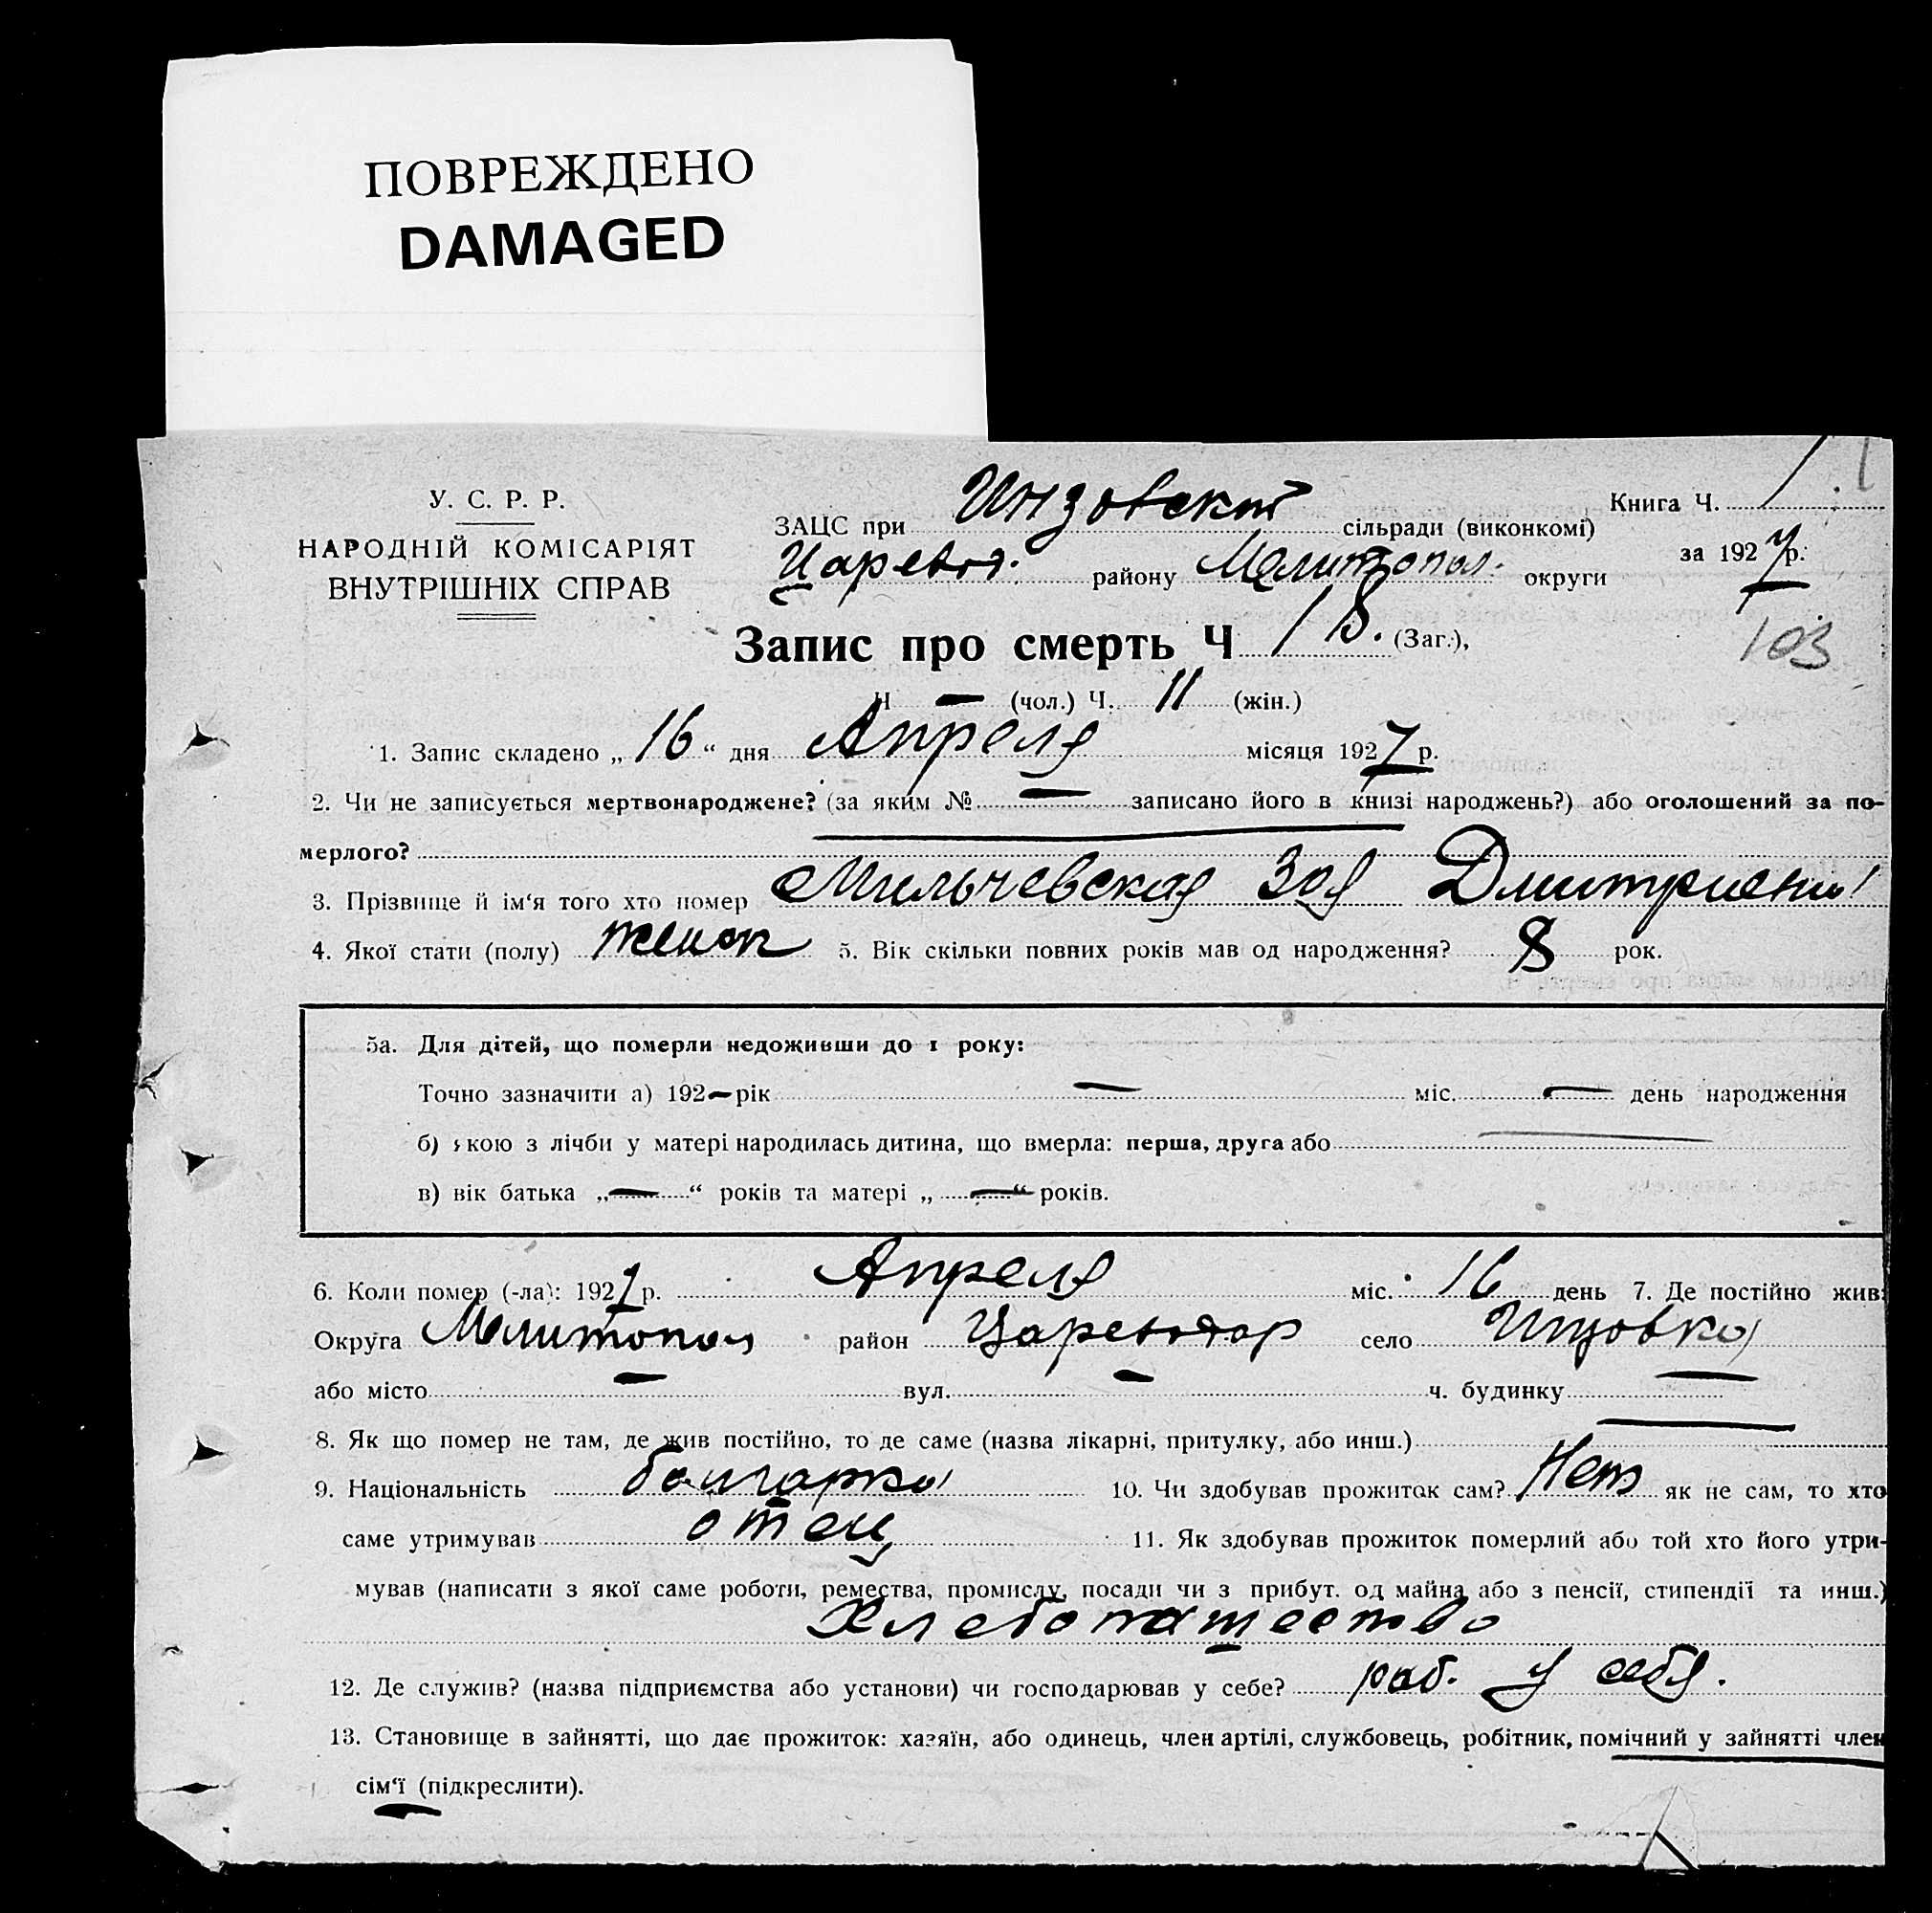 ПОВРЕЖДЕНО
DAMAGED
У. С. Р. Р.
НАРОДНІЙ КОМІСАРІЯТ
ВНУТРІШНІХ СПРАВ
ЗАЦС при Инзовскт сільради (виконкомі)
Царевод. району Мелитопол. округи
Книга Ч. 1
за 1927 р.
103
Запис про смерть Ч 18. (Заг.),
Ч — (чол.) Ч. 11 (жін.)
1. Запис складено „16“ дня Апреля місяця 1927 р.
2. Чи не записується мертвонароджене? (за яким № — записано його в книзі народжень?) або оголошений за по-
мерлого?
3. Прізвище й ім‘я того хто помер Мильчевская Зоя Дмитриевна
4. Якої стати (полу) женск 5. Вік скільки повних років мав од народження? 8 рок.
5а. Для дітей, що померли недоживши до 1 року:
Точно зазначити а) 192— рік — міс. — день народження
б) якою з лічби у матері народилась дитина, що вмерла: перша, друга або —
в) вік батька „—“ років та матері „—“ років.
6. Коли помер (-ла): 1927 р. Апреля міс. 16 день 7. Де постійно жив:
Округа Мелитопол район Цареводар село Инзовка
або місто — вул. — ч. будинку —
8. Як що помер не там, де жив постійно, то де саме (назва лікарні, притулку, або инш.) —
9. Національність болгарка 10. Чи здобував прожиток сам? Нет як не сам, то хто
саме утримував отец 11. Як здобував прожиток померлий або той хто його утри-
мував (написати з якої саме роботи, ремества, промислу, посади чи з прибут. од майна або з пенсії, стипендії та инш.)
Хлебопашество
12. Де служив? (назва підприємства або установи) чи господарював у себе? раб. у себя.
13. Становище в зайнятті, що дає прожиток: хазяїн, або одинець, член артілі, службовець, робітник, помічний у зайнятті член
сім‘ї (підкреслити).